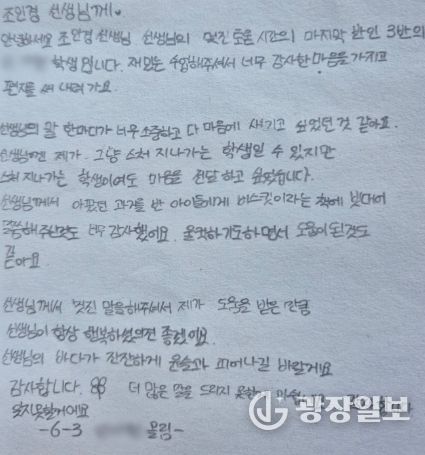 조인경 선생님께
안녕하세요 조인경 선생님 선생님의 멋진 도움 시간의 마지막 반인 3반의
학생 입니다. 재밌는 수업해주셔서 너무 감사한 마음을 가지고
편지를 써 내려 가요.
선생님의 말 한마디가 너무 소중하고 다 마음에 새기고 싶었던 것 같아요.
선생님껜 제가 그냥 스쳐 지나가는 학생일 수 있지만
스쳐 지나가는 학생이여도 마음을 전달 하고 싶었습니다.
선생님께서 아팠던 과거를 반 아이들에게 비스킷이라는 책에 빗대어
말씀해주신것도 너무 감사했어요. 울컥하기도하면서 도움이 된것도
같아요
선생님께서 멋진 말을해주셔서 제가 도움을 받은 만큼
선생님이 항상 행복하셨으면 좋겠어요.
선생님의 바다가 잔잔하게 윤슬과 피어나길 바랄게요
감사합니다. 더 많은 말을 드리지 못한
잊지못할거에요
-6-3 올림-
광장일보